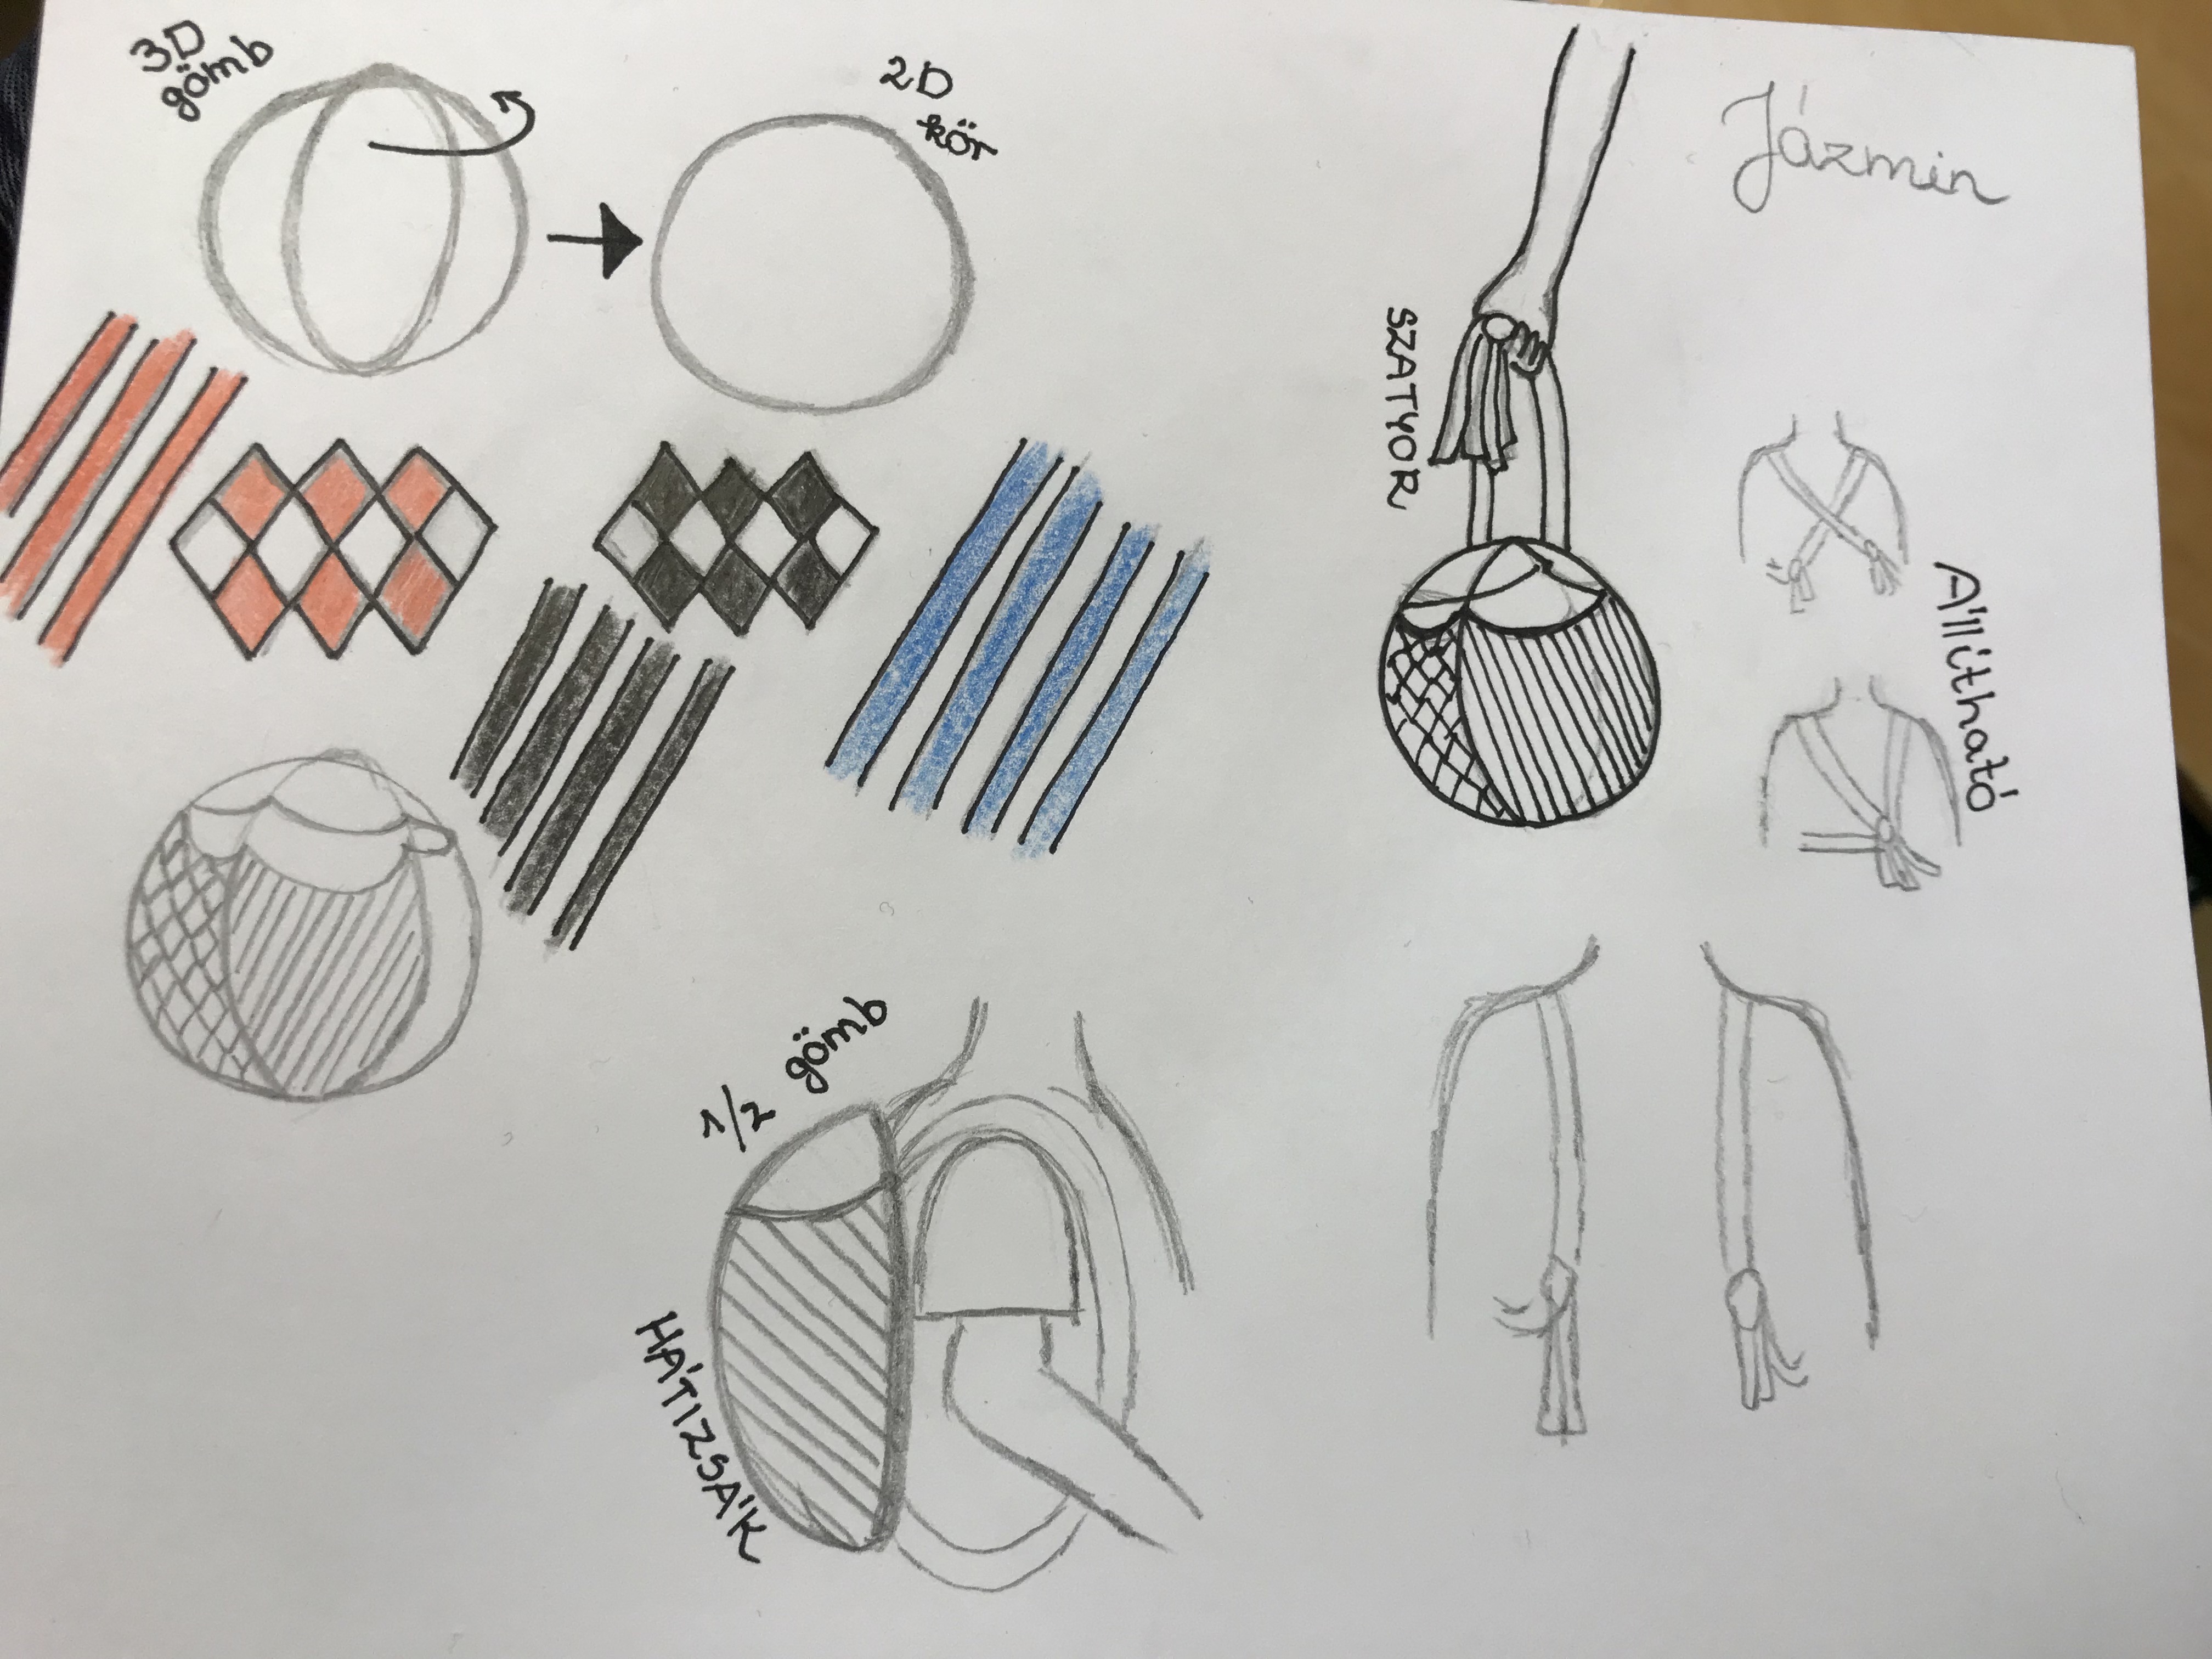 3D
gömb
2D
kör
Jázmin
SZATYOR
Állítható
1/2 gömb
HÁTIZSÁK